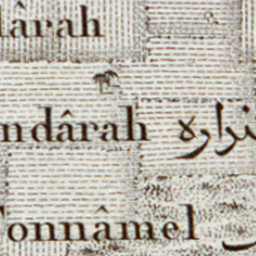 lârah
ndârah ندراره
onnâmel